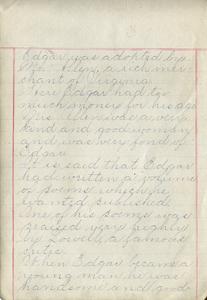 3
Edgar was adopted by
Mr. Allen, a rich mer-
chant of Virginia.
Here Edgar had too
much money for his age
Mrs. Allen was a very
kind and good woman
and was very fond of
Edgar.
It is said that Edgar
had written a volume
of poems which he
wanted published
One of his poems was
praised very highly
by Lowell, a famous
critic.
When Edgar became a
young man he was
handsome and good